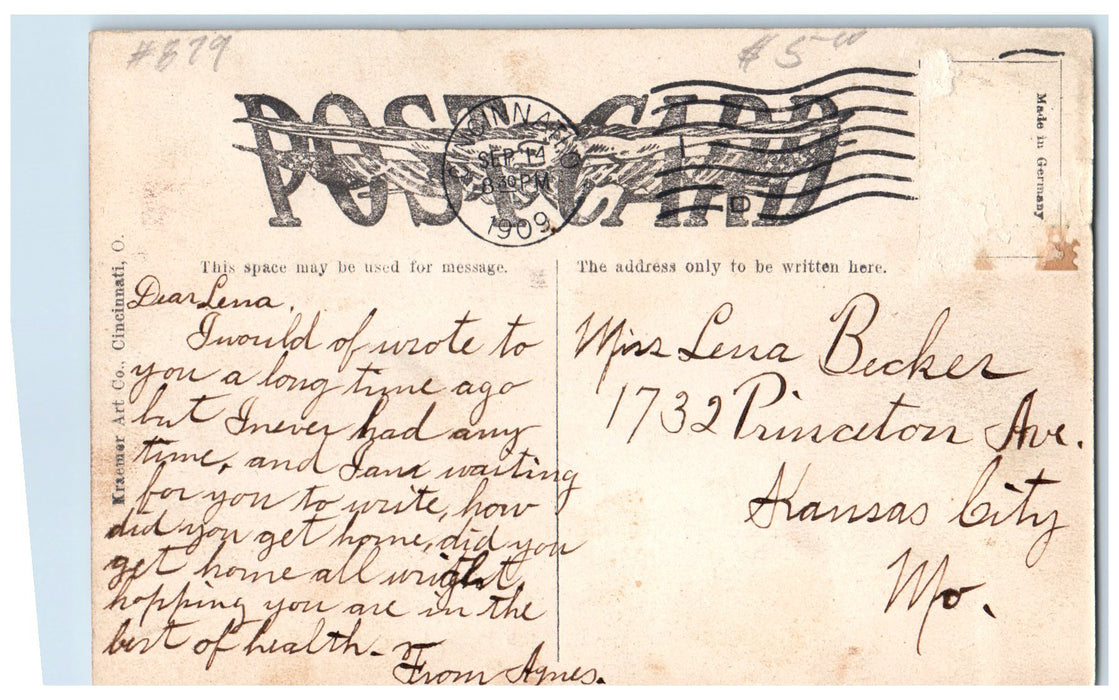 #879
$5.00
POST CARD
CINCINNATI, O
SEP 14
8 30 PM
1909
Made in Germany
This space may be used for message.
The address only to be written here.
Kraemer Art Co., Cincinnati, O.
Dear Lena.
I would of wrote to
you a long time ago
but I never had any
time, and I am waiting
for you to write, how
did you get home, did you
get home all wright,
hopping you are in the
best of health-
From Agnes.
Miss Lena Becker
1732 Princeton Ave.
Kansas City
Mo.